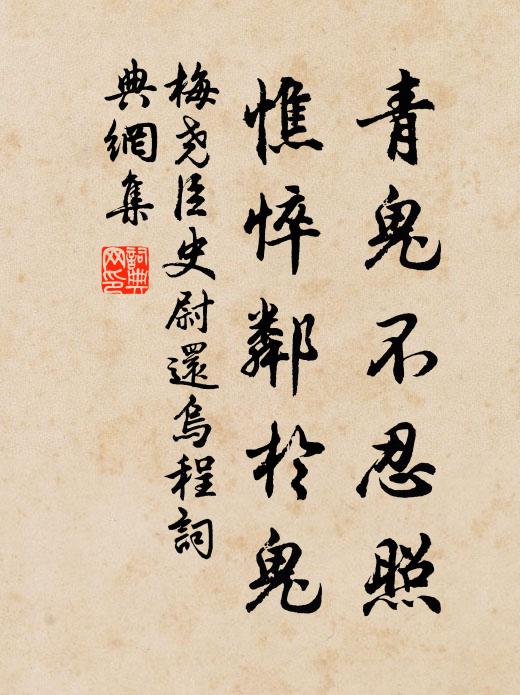 青鬼不忍照
憔悴鄰於鬼
梅尧臣史尉還烏程詞
典網集
詞典
网印